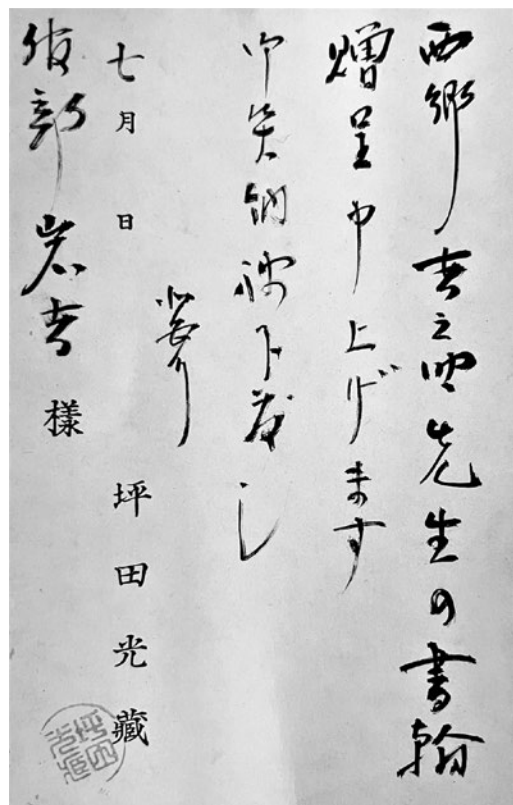 西郷吉之助先生の書翰
贈呈申上げます
御笑納被下度し
敬具
七月 日
坪田光藏
服部岩吉 様